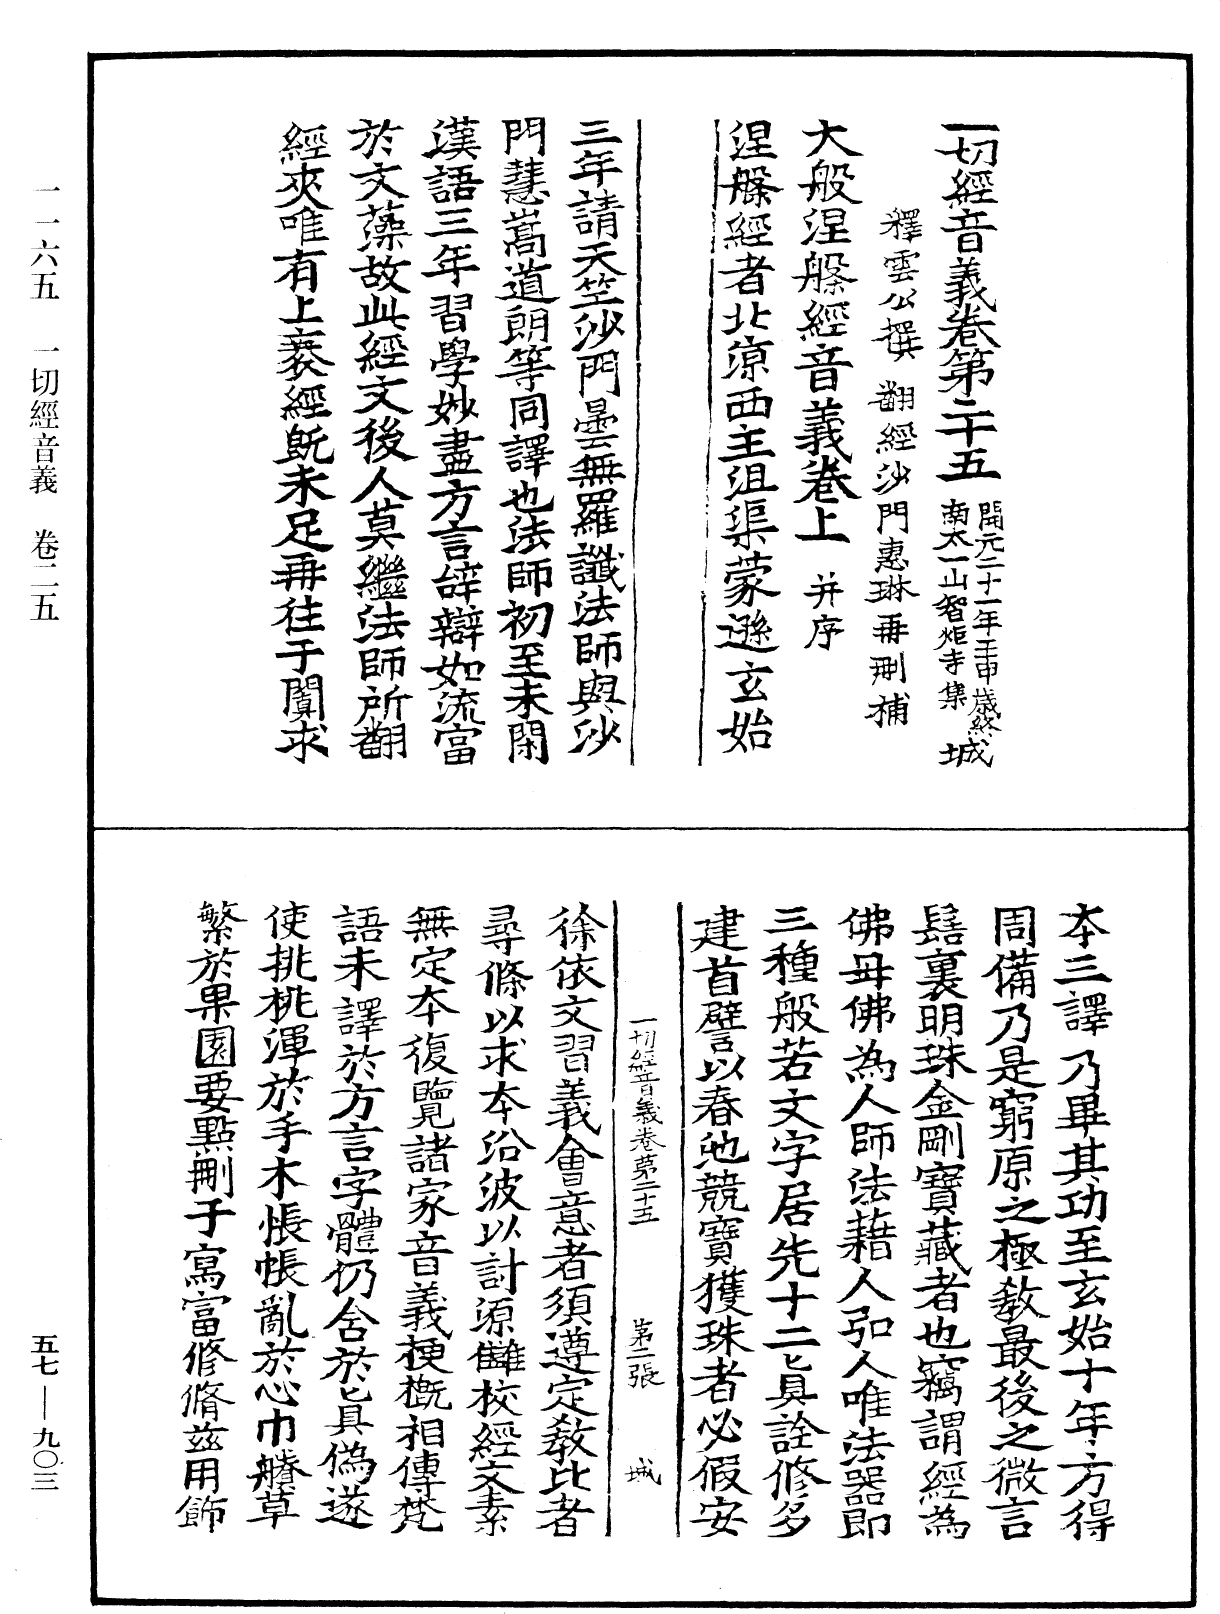 一切經音義卷第二十五
開元二十一年壬申歲終
南太一山智炬寺集
城
釋雲公撰 翻經沙門惠琳再刪補
大般涅槃經音義卷上 并序
涅槃經者北涼西主沮渠蒙遜玄始
三年請天竺沙門曇無羅讖法師與沙
門慧嵩道朗等同譯也法師初至未閑
漢語三年習學妙盡方言辞辯如流富
於文藻故此經文後人莫繼法師所翻
經夾唯有上袠經既未足再往于闐求
本三譯乃畢其功至玄始十年方得
周備乃是窮原之極教最後之微言
髻裏明珠金剛寶藏者也竊謂經為
佛母佛為人師法藉人弘人唯法器即
三種般若文字居先十二真詮修多
建首譬以春池競寶獲珠者必假安
一切經音義卷第二十五 第二張 城
徐依文習義會意者須遵定教比者
尋條以求本沿波以討源讎校經文素
無定本復覽諸家音義梗概相傳梵
語未譯於方言字體仍含於真偽遂
使挑桃渾於手木悵帳亂於心巾艪草
繁於果園要點刪于寫富修脩茲用飾
一一六五 一切經音義 卷二五
五七—九〇三